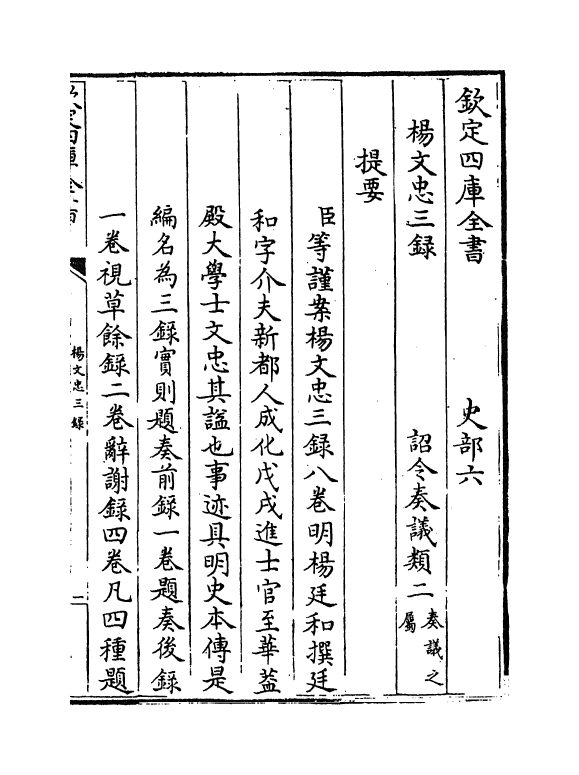 欽定四庫全書　史部六
楊文忠三録　詔令奏議類二 奏議之屬
提要
臣等謹案楊文忠三録八卷明楊廷和撰廷
和字介夫新都人成化戊戌進士官至華蓋
殿大學士文忠其謚也事迹具明史本傳是
編名為三録實則題奏前録一卷題奏後録
一卷視草餘録二卷辭謝録四卷凡四種題
楊文忠三録
一